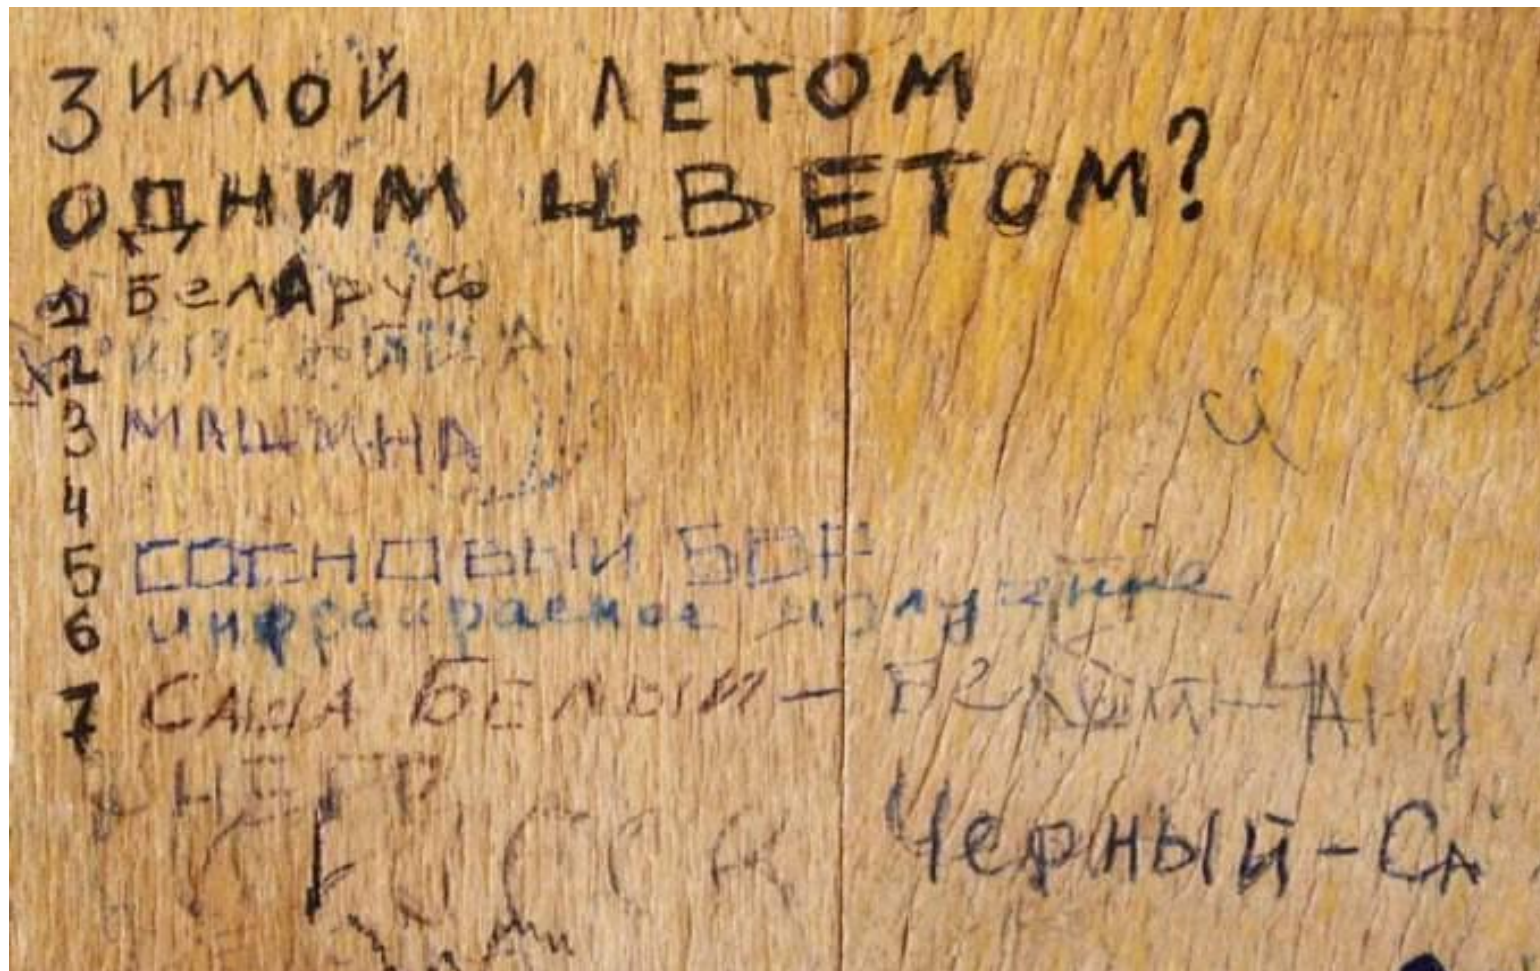 ЗИМОЙ И ЛЕТОМ
ОДНИМ ЦВЕТОМ?
1 БеЛАрусь
2
3 МАШИНА
4
5 СОСНОВЫЙ БОР
6 инфракрасное излучение
7 САША БЕЛЫЙ –
НЕГР
Черный – СА